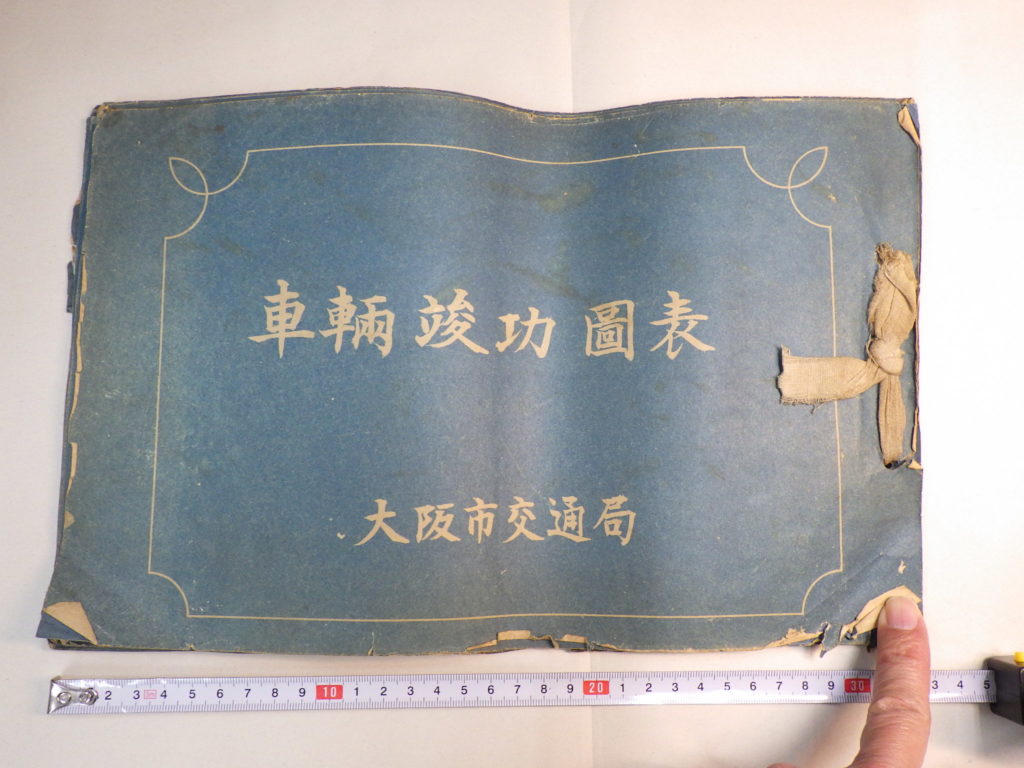 車輛竣功圖表
大阪市交通局
2 3 4 5 6 7 8 9 10 1 2 3 4 5 6 7 8 9 20 1 2 3 4 5 6 7 8 9 30 3 4 5